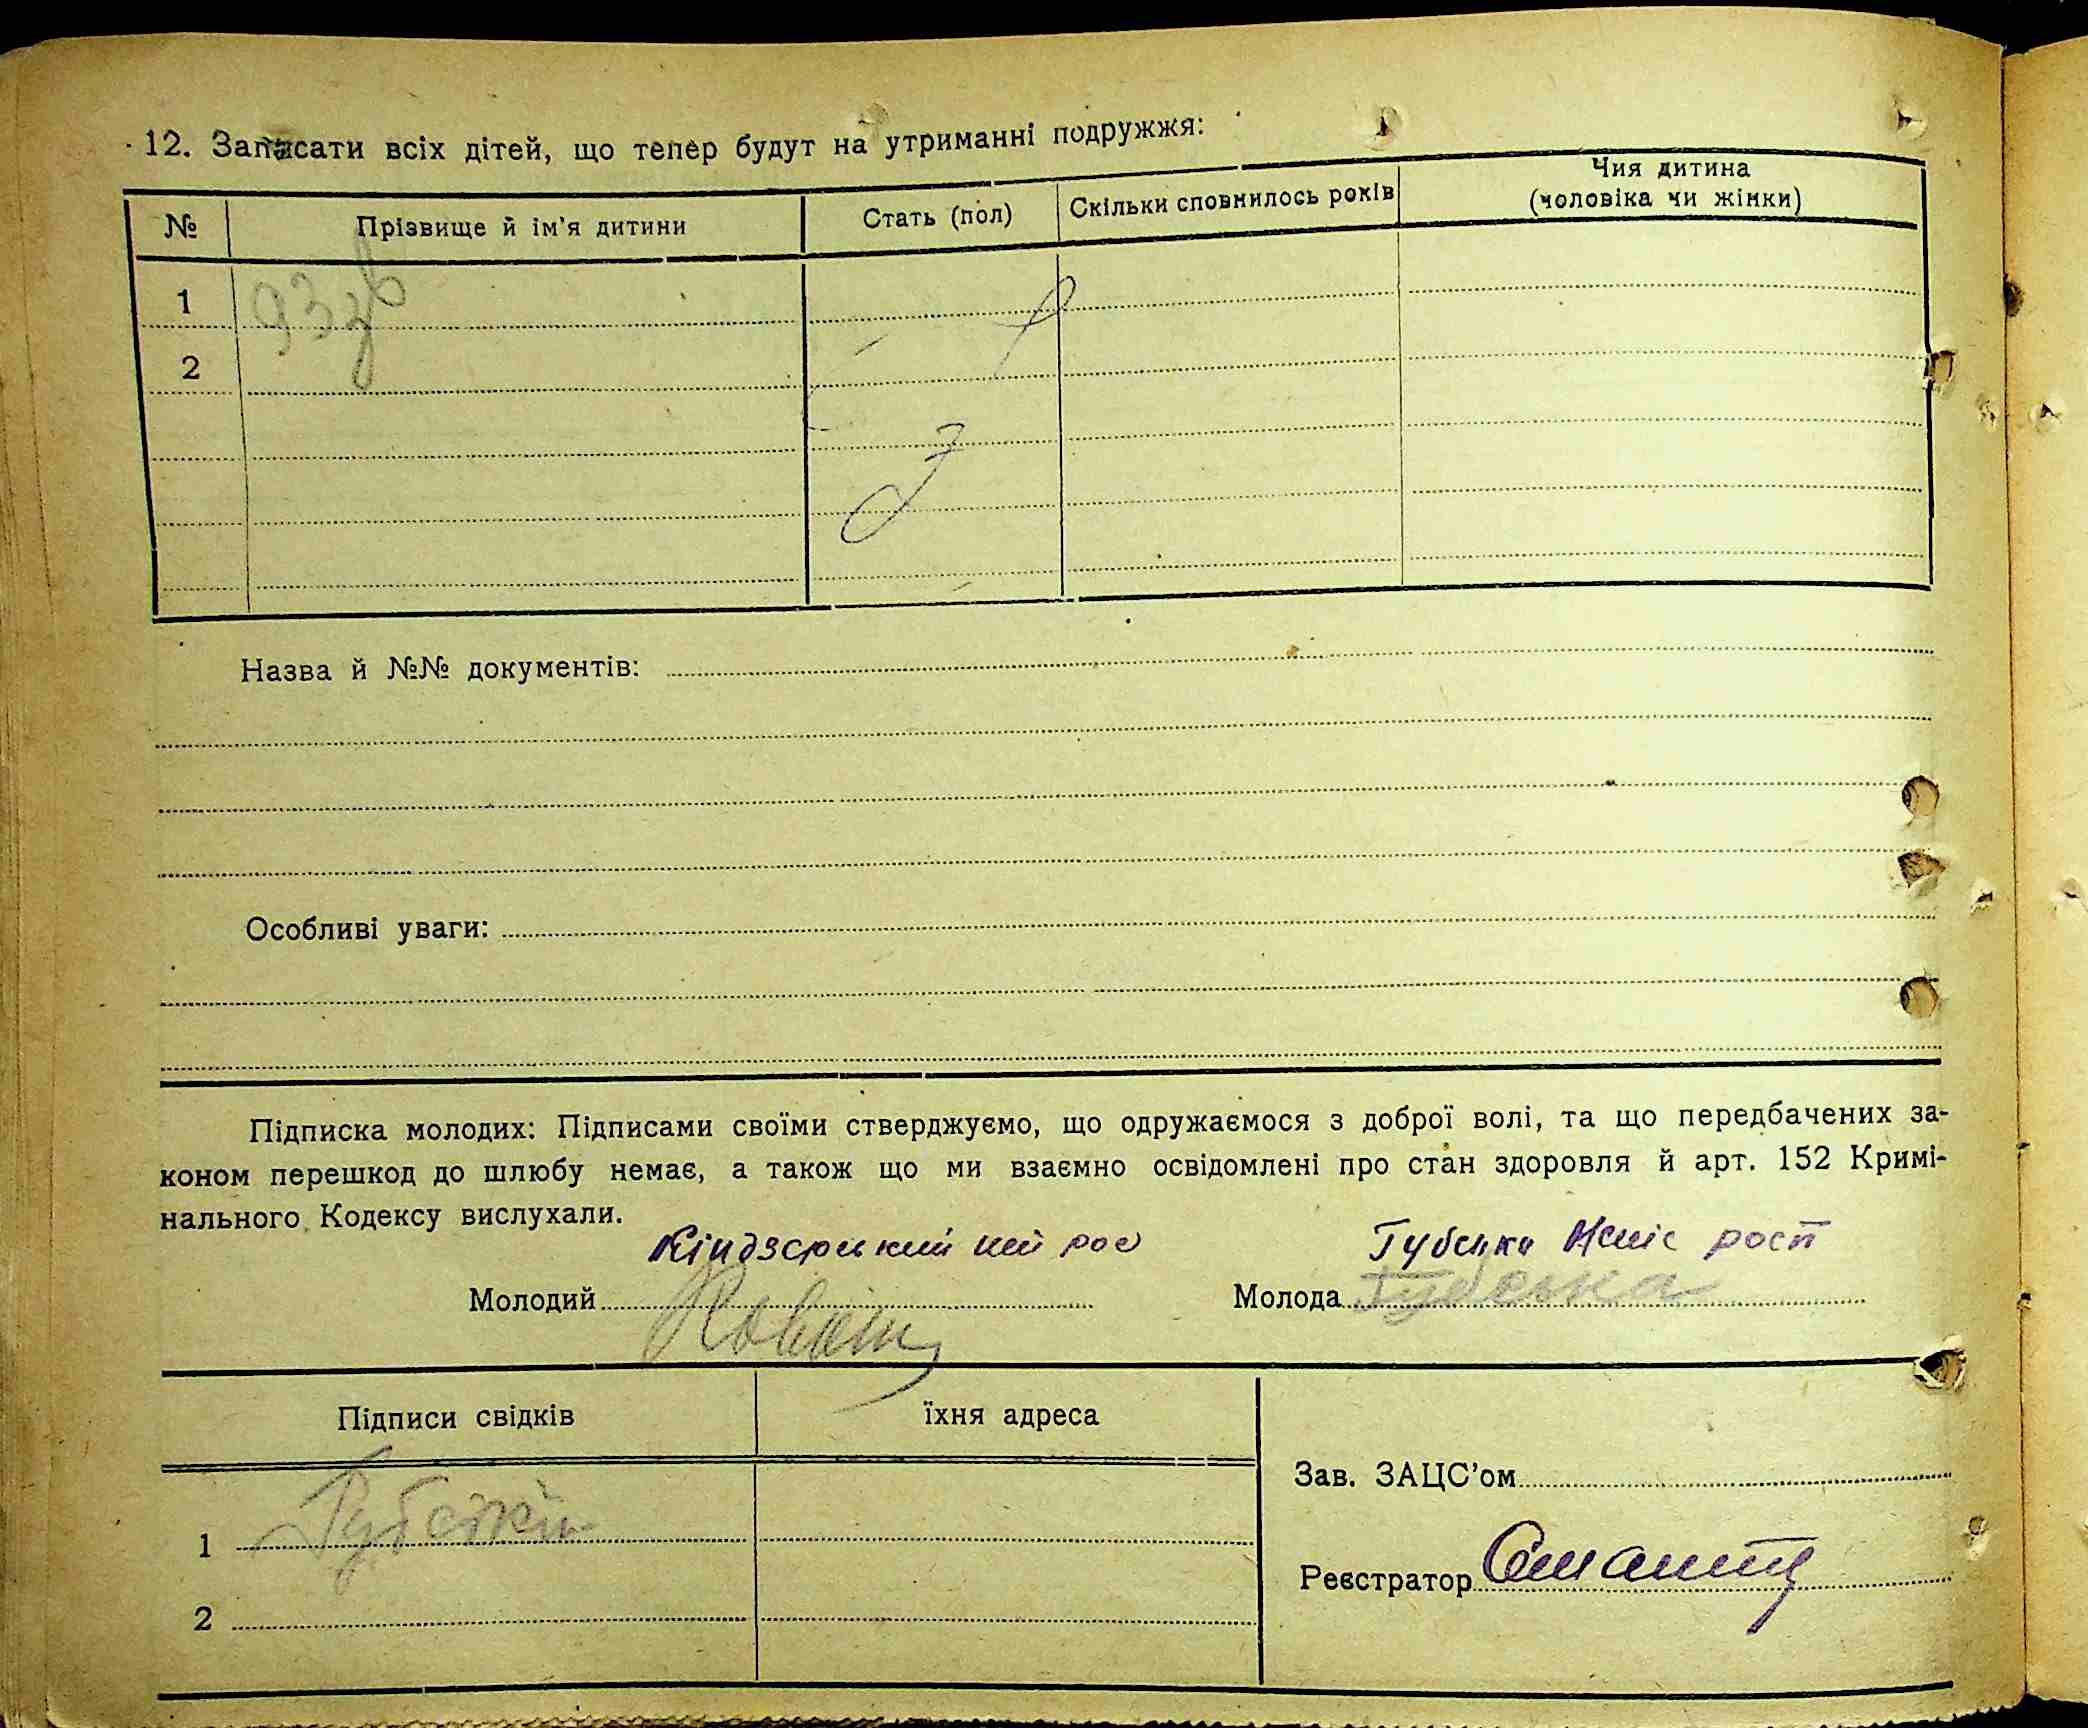 12. Записати всіх дітей, що тепер будут на утриманні подружжя:
№ Прізвище й ім'я дитини Стать (пол) Скільки сповнилось років Чия дитина (чоловіка чи жінки)
1
2
Назва й №№ документів:
Особливі уваги:
Підписка молодих: Підписами своїми стверджуємо, що одружаємося з доброї волі, та що передбачених за-
коном перешкод до шлюбу немає, а також що ми взаємно освідомлені про стан здоровля й арт. 152 Кримі-
нального Кодексу вислухали.
Губенко
Молодий Молода
Підписи свідків їхня адреса
Зав. ЗАЦС'ом
1
Реєстратор
2